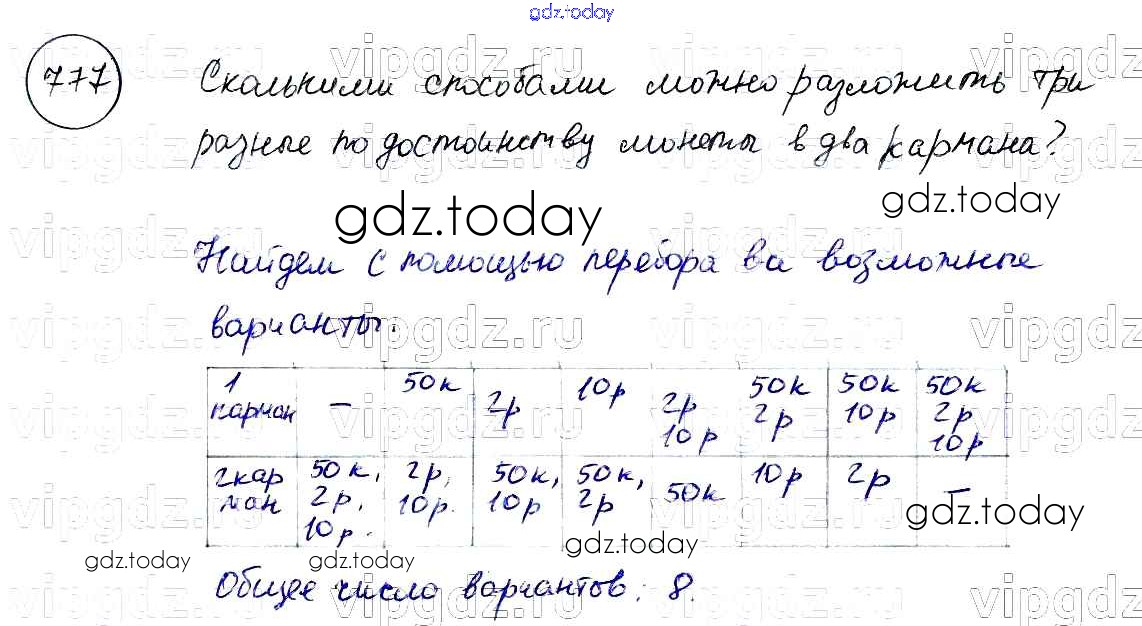 gdz.today
777
Сколькими способами можно разложить три
разные по достоинству монеты в два кармана?
gdz.today
gdz.today
Найдем с помощью перебора ва возможные
варианты.
1 карман — 50к 2р 10р 2р 10р 50к 2р 50к 10р 50к 2р 10р
2 карман 50к, 2р, 10р. 2р, 10р. 50к, 10р 50к, 2р 50к 10р 2р —
gdz.today
gdz.today
gdz.today
gdz.today
Общее число вариантов: 8.
vipgdz.ru